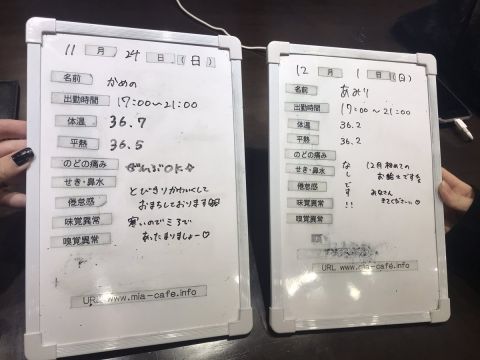 11 月 24 日 (日)
名前 かめの
出勤時間 17:00〜21:00
体温 36.7
平熱 36.5
のどの痛み ぜんぶOK☆
せき・鼻水
倦怠感 とびきりかわいくして
おまちしております
味覚異常 寒いのでミアで
嗅覚異常 あったまりましょー♡
URL www.mia-cafe.info
12 月 1 日 (日)
名前 あみり
出勤時間 17:00〜21:00
体温 36.2
平熱 36.2
のどの痛み なしです!!
せき・鼻水 12月初めての
お給仕です
倦怠感 みなさん
味覚異常 きてくださいっ♡
嗅覚異常
URL www.mia-cafe.info